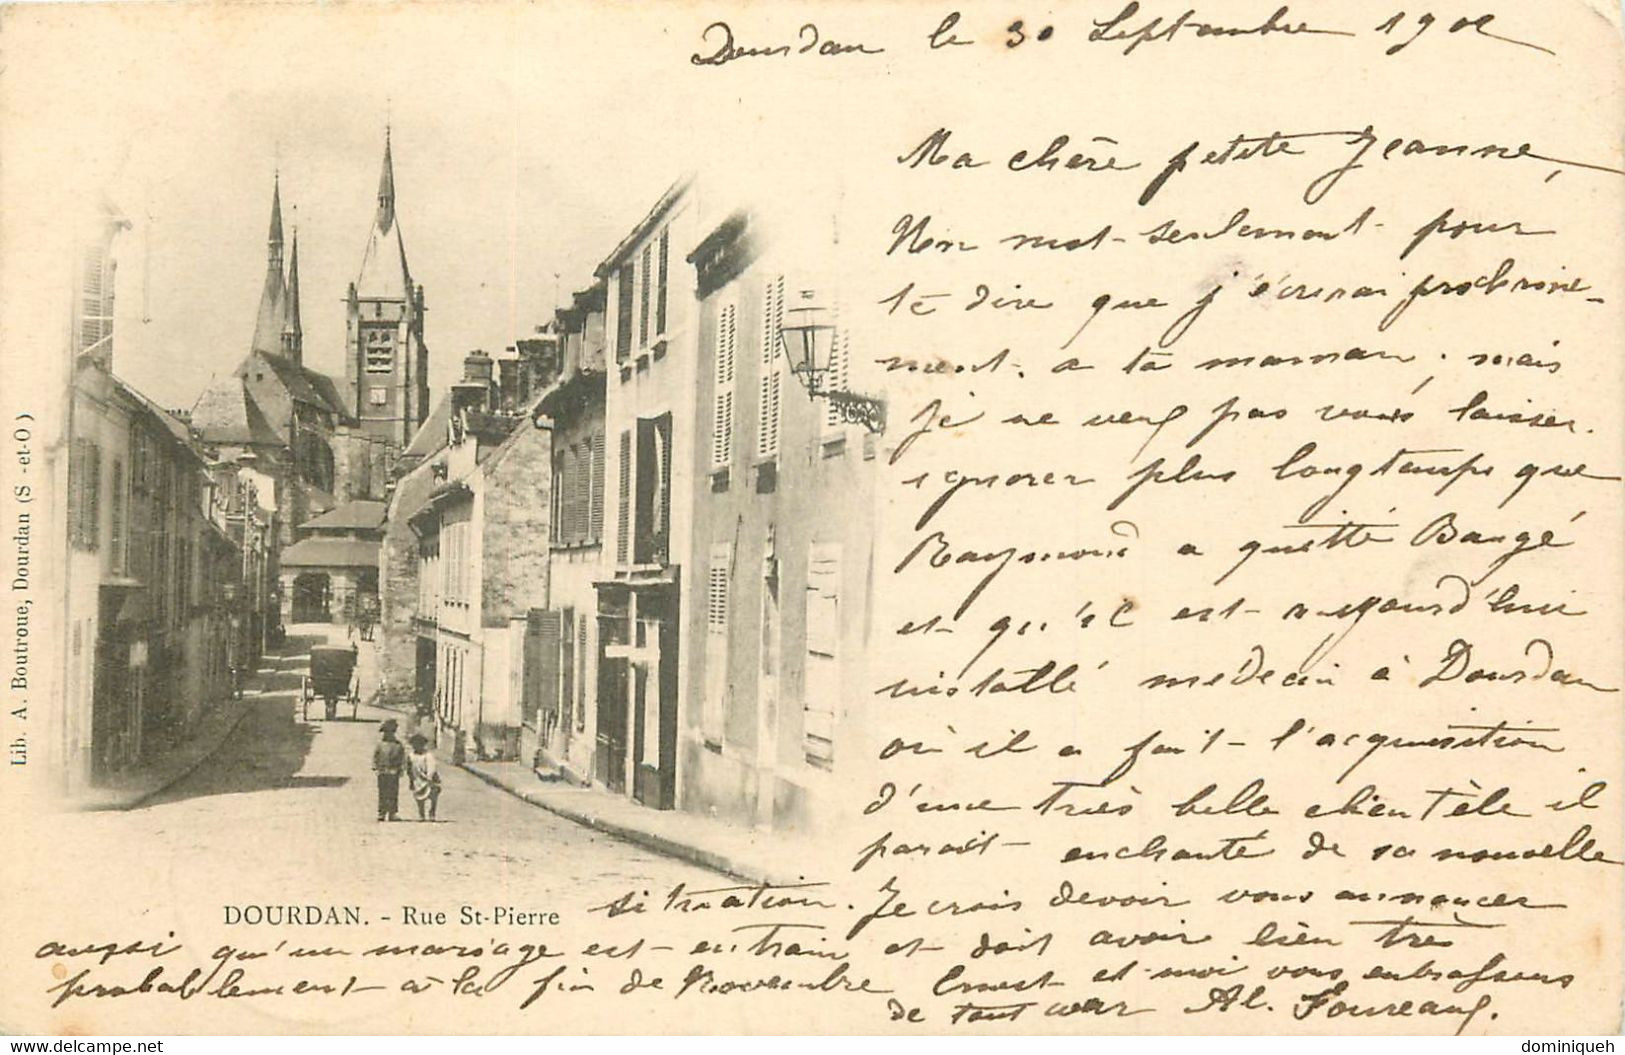 Dourdan le 30 Septembre 1902
Ma chère petite Jeanne,
Un mot seulement pour
te dire que j'écrirai prochaine-
ment a ta maman, mais
je ne veux pas vous laisser
ignorer plus longtemps que
Raymond a quitté Baugé
et qu'il est aujourd'hui
installé médecin à Dourdan
où il a fait l'acquisition
d'une très belle clientèle il
parait enchanté de sa nouvelle
situation. Je crois devoir vous annoncer
aussi qu'un mariage est en train et doit avoir lieu très
probablement à la fin de Novembre Ernest et moi vous embrassons
de tout cœur Al. Foureaux.
DOURDAN. - Rue St-Pierre
Lib. A. Boutroue, Dourdan (S -et-O)
delcampe.net
dominiqueh